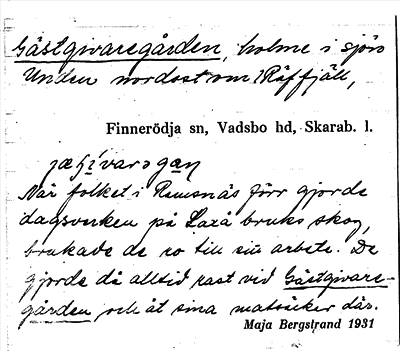 Gästgivaregården, holme i sjön
Unden nordost om Räffjäll,
Finnerödja sn, Vadsbo hd, Skarab. l.
När folket i Ramsnäs förr gjorde
dagsverken på Laxå bruks skog,
brukade de ro till sitt arbete. De
gjorde då alltid rast vid Gästgivare-
gården och åt sina matsäcker där.
Maja Bergstrand 1931